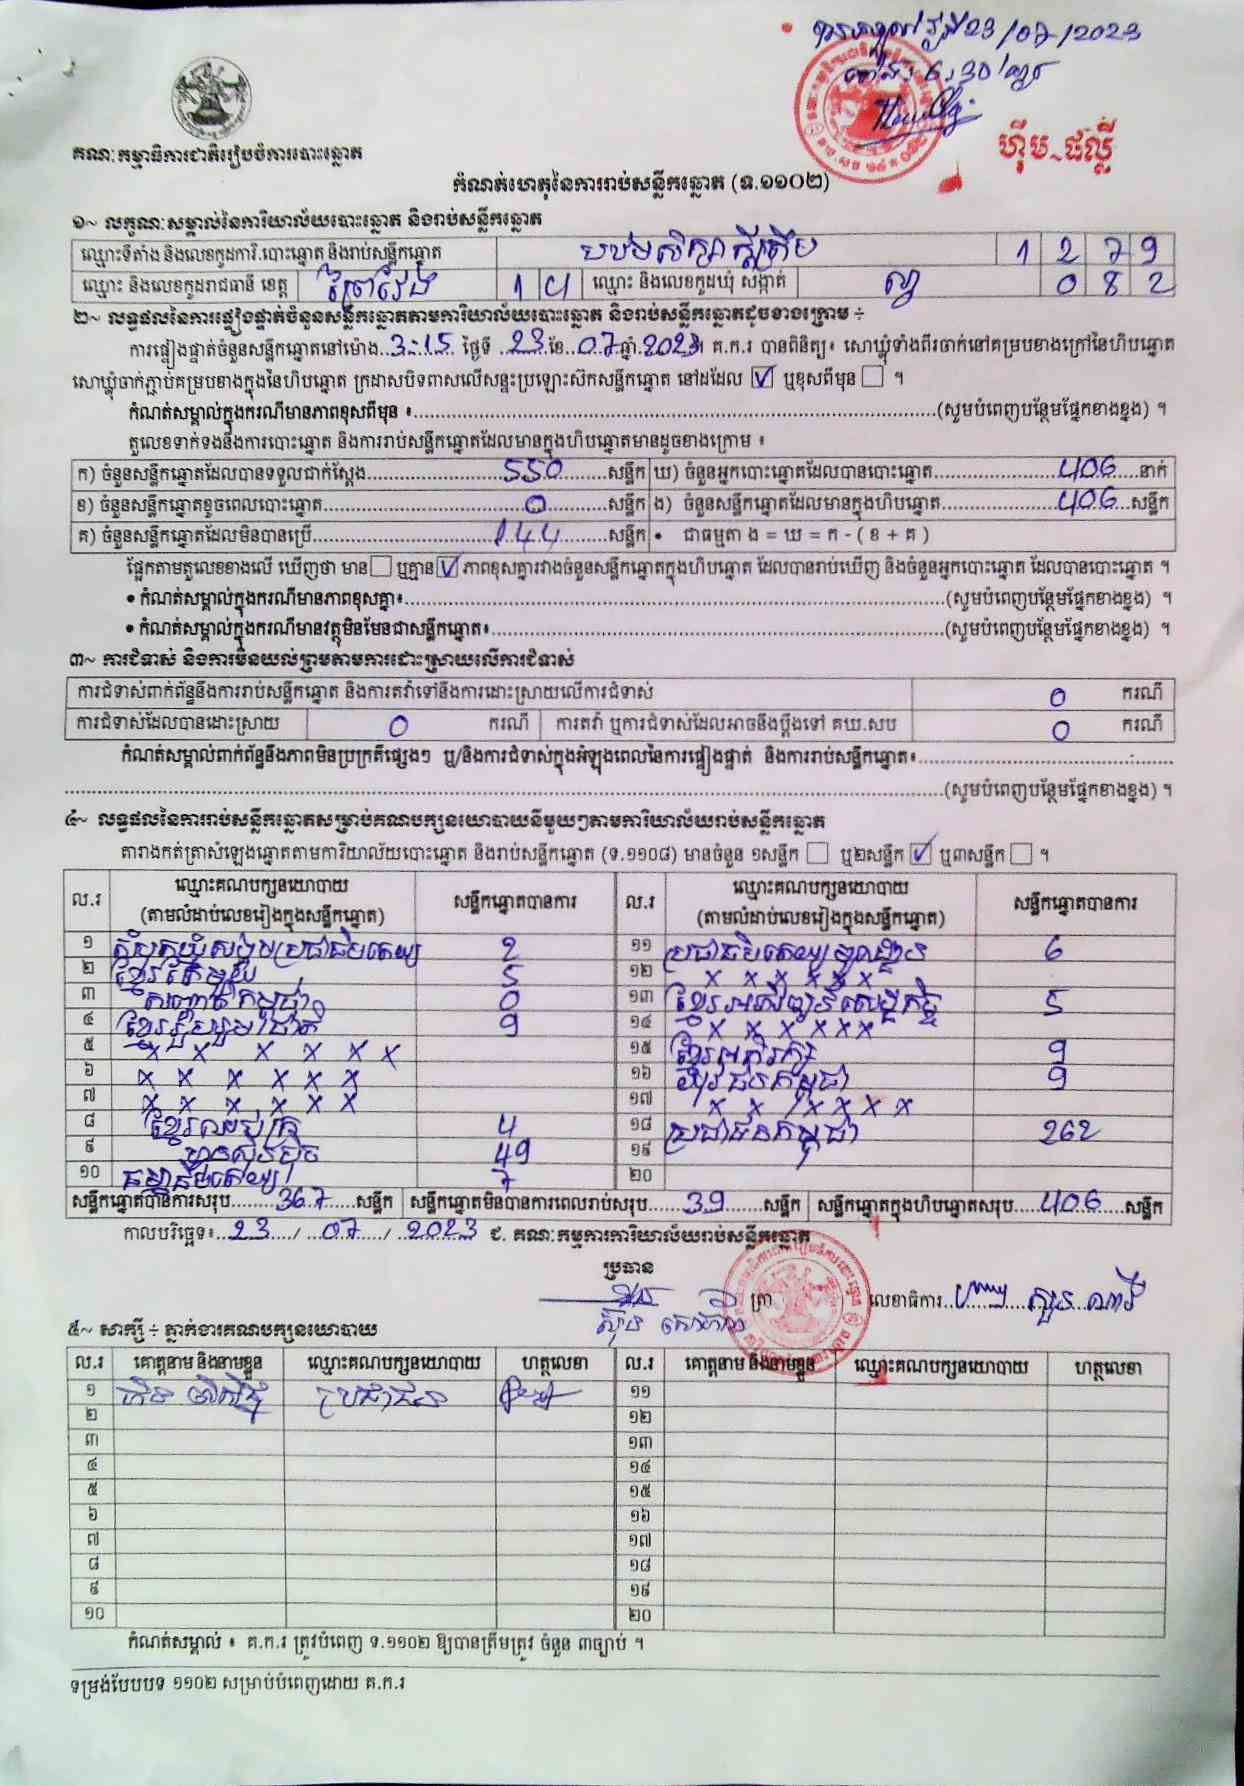 បានឃើញ ថ្ងៃទី 23/07/2023
ម៉ោង 6:30 ល្ងាច
ហ៊ឹម ~ ផល្លី
គណៈកម្មាធិការជាតិរៀបចំការបោះឆ្នោត
កំណត់ហេតុនៃការរាប់សន្លឹកឆ្នោត (ទ.១១០២)
១~ លក្ខណៈសម្គាល់នៃការិយាល័យបោះឆ្នោត និងរាប់សន្លឹកឆ្នោត
ឈ្មោះទីតាំង និងលេខកូដការិ.បោះឆ្នោត និងរាប់សន្លឹកឆ្នោត 1 2 7 9
ឈ្មោះ និងលេខកូដរាជធានី ខេត្ត ព្រៃវែង 1 4 ឈ្មោះ និងលេខកូដឃុំ សង្កាត់ ល្វា 0 8 2
២~ លទ្ធផលនៃការផ្ទៀងផ្ទាត់ចំនួនសន្លឹកឆ្នោតតាមការិយាល័យបោះឆ្នោត និងរាប់សន្លឹកឆ្នោតដូចខាងក្រោម ÷
ការផ្ទៀងផ្ទាត់ចំនួនសន្លឹកឆ្នោតនៅម៉ោង 3:15 ថ្ងៃទី 23 ខែ 07 ឆ្នាំ 2023។ គ.ក.រ បានពិនិត្យ៖ សោឃ្លុំទាំងពីរចាក់នៅគម្របខាងក្រៅនៃហិបឆ្នោត
សោឃ្លុំចាក់ភ្ជាប់គម្របខាងក្នុងនៃហិបឆ្នោត ក្រដាសបិទពាសលើសន្ទះប្រឡោះស៊កសន្លឹកឆ្នោត នៅដដែល ☑ ឬខុសពីមុន ☐ ។
កំណត់សម្គាល់ក្នុងករណីមានភាពខុសពីមុន ៖ (សូមបំពេញបន្ថែមផ្នែកខាងខ្នង) ។
តួលេខទាក់ទងនឹងការបោះឆ្នោត និងការរាប់សន្លឹកឆ្នោតដែលមានក្នុងហិបឆ្នោតមានដូចខាងក្រោម ៖
ក) ចំនួនសន្លឹកឆ្នោតដែលបានទទួលជាក់ស្តែង 550 សន្លឹក ឃ) ចំនួនអ្នកបោះឆ្នោតដែលបានបោះឆ្នោត 406 នាក់
ខ) ចំនួនសន្លឹកឆ្នោតខូចពេលបោះឆ្នោត 0 សន្លឹក ង) ចំនួនសន្លឹកឆ្នោតដែលមានក្នុងហិបឆ្នោត 406 សន្លឹក
គ) ចំនួនសន្លឹកឆ្នោតដែលមិនបានប្រើ 144 សន្លឹក • ជាធម្មតា ង = ឃ = ក - ( ខ + គ )
ផ្អែកតាមតួលេខខាងលើ ឃើញថា មាន ☐ ឬគ្មាន ☑ ភាពខុសគ្នារវាងចំនួនសន្លឹកឆ្នោតក្នុងហិបឆ្នោត ដែលបានរាប់ឃើញ និងចំនួនអ្នកបោះឆ្នោត ដែលបានបោះឆ្នោត ។
• កំណត់សម្គាល់ក្នុងករណីមានភាពខុសគ្នា៖ (សូមបំពេញបន្ថែមផ្នែកខាងខ្នង) ។
• កំណត់សម្គាល់ក្នុងករណីមានវត្ថុមិនមែនជាសន្លឹកឆ្នោត៖ (សូមបំពេញបន្ថែមផ្នែកខាងខ្នង) ។
៣~ ការជំទាស់ និងការមិនយល់ព្រមតាមការដោះស្រាយលើការជំទាស់
ការជំទាស់ពាក់ព័ន្ធនឹងការរាប់សន្លឹកឆ្នោត និងការតវ៉ាទៅនឹងការដោះស្រាយលើការជំទាស់ 0 ករណី
ការជំទាស់ដែលបានដោះស្រាយ 0 ករណី ការតវ៉ា ឬការជំទាស់ដែលអាចនឹងប្តឹងទៅ គឃ.សប 0 ករណី
កំណត់សម្គាល់ពាក់ព័ន្ធនឹងភាពមិនប្រក្រតីផ្សេងៗ ឬ/និងការជំទាស់ក្នុងអំឡុងពេលនៃការផ្ទៀងផ្ទាត់ និងការរាប់សន្លឹកឆ្នោត៖
(សូមបំពេញបន្ថែមផ្នែកខាងខ្នង) ។
៤~ លទ្ធផលនៃការរាប់សន្លឹកឆ្នោតសម្រាប់គណបក្សនយោបាយនីមួយៗតាមការិយាល័យរាប់សន្លឹកឆ្នោត
តារាងកត់ត្រាសំឡេងឆ្នោតតាមការិយាល័យបោះឆ្នោត និងរាប់សន្លឹកឆ្នោត (ទ.១១០៨) មានចំនួន ១សន្លឹក ☐ ឬ២សន្លឹក ☑ ឬ៣សន្លឹក ☐ ។
ល.រ ឈ្មោះគណបក្សនយោបាយ (តាមលំដាប់លេខរៀងក្នុងសន្លឹកឆ្នោត) សន្លឹកឆ្នោតបានការ ល.រ ឈ្មោះគណបក្សនយោបាយ (តាមលំដាប់លេខរៀងក្នុងសន្លឹកឆ្នោត) សន្លឹកឆ្នោតបានការ
១ សំបុកឃ្មុំសង្គមប្រជាធិបតេយ្យ 2 ១១ ប្រជាធិបតេយ្យមូលដ្ឋាន 6
២ ខ្មែរតែមួយ 5 ១២ x x x x x x
៣ សញ្ជាតិកម្ពុជា 0 ១៣ ខ្មែរអភិវឌ្ឍន៍សេដ្ឋកិច្ច 5
៤ ខ្មែររួបរួមជាតិ 9 ១៤ x x x x x x
៥ x x x x x x ១៥ ខ្មែរអភិរក្ស 9
៦ x x x x x x ១៦ យុវជនកម្ពុជា 9
៧ x x x x x x ១៧ x x x x x x
៨ ខ្មែរឈប់ក្រ 4 ១៨ ប្រជាជនកម្ពុជា 262
៩ ហ៊្វុនស៊ិនប៉ិច 49 ១៩
១០ ធម្មាធិបតេយ្យ 7 ២០
សន្លឹកឆ្នោតបានការសរុប 367 សន្លឹក សន្លឹកឆ្នោតមិនបានការពេលរាប់សរុប 39 សន្លឹក សន្លឹកឆ្នោតក្នុងហិបឆ្នោតសរុប 406 សន្លឹក
កាលបរិច្ឆេទ៖ 23 / 07 / 2023 ជ. គណៈកម្មការការិយាល័យរាប់សន្លឹកឆ្នោត
ប្រធាន
ត្រា លេខាធិការ សួន ណារី
៥~ សាក្សី ÷ ភ្នាក់ងារគណបក្សនយោបាយ
ល.រ គោត្តនាម និងនាមខ្លួន ឈ្មោះគណបក្សនយោបាយ ហត្ថលេខា ល.រ គោត្តនាម និងនាមខ្លួន ឈ្មោះគណបក្សនយោបាយ ហត្ថលេខា
១ ប្រជាជន ១១
២ ១២
៣ ១៣
៤ ១៤
៥ ១៥
៦ ១៦
៧ ១៧
៨ ១៨
៩ ១៩
១០ ២០
កំណត់សម្គាល់ ៖ គ.ក.រ ត្រូវបំពេញ ទ.១១០២ ឱ្យបានត្រឹមត្រូវ ចំនួន ៣ច្បាប់ ។
ទម្រង់បែបបទ ១១០២ សម្រាប់បំពេញដោយ គ.ក.រ